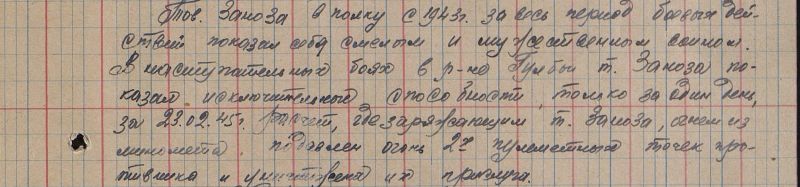 Тов. Заноза в полку с 1943г. за весь период боевых дей-
ствий показал себя смелым и мужественным воином.
В наступательных боях в р-не Гулбы т. Заноза по-
казал исключительный способности, только за один день,
за 23.02.45г. расчет, где заряжающим т. Заноза, огнем из
миномета подавлен огонь 2х пулеметных точек про-
тивника и уничтожена их прислуга.